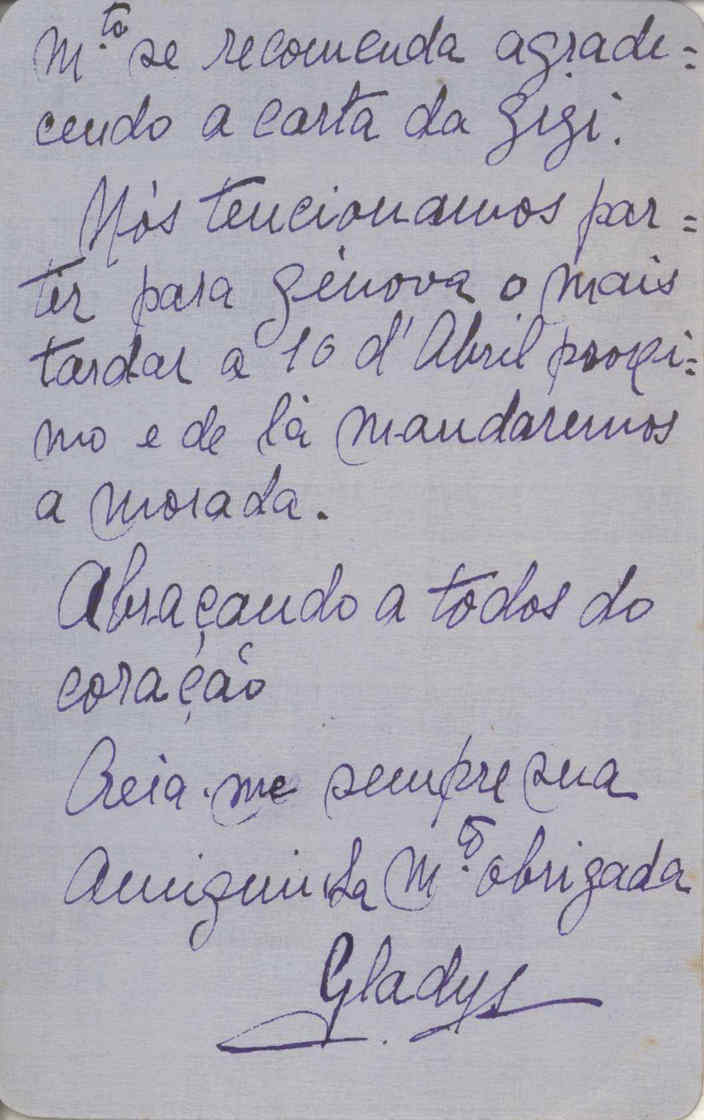 M.to se recomenda agrade=
cendo a carta da Gigi.
Nós tencionamos par=
tir para Génova o mais
tardar a 10 d'Abril proxi=
mo e de lá mandaremos
a morada.
Abraçando a todos do
coração
Creia-me sempre sua
Amiguinha M.to obrigada
Gladys